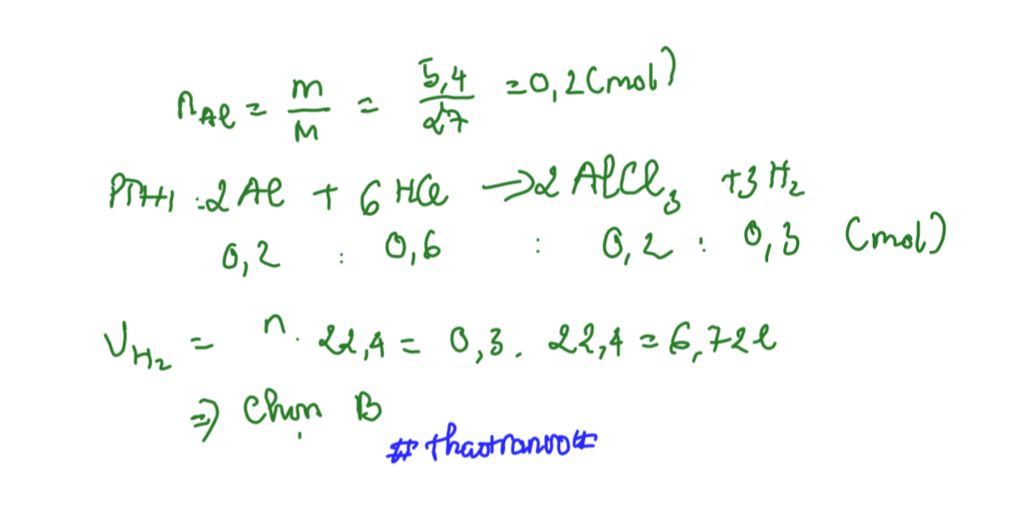 nAl = m/M = 5,4/27 = 0,2 (mol)
PTHH : 2 Al + 6 HCl → 2 AlCl₃ + 3 H₂
0,2 : 0,6 : 0,2 : 0,3 (mol)
V_H₂ = n . 22,4 = 0,3 . 22,4 = 6,72 l
⇒ Chọn B